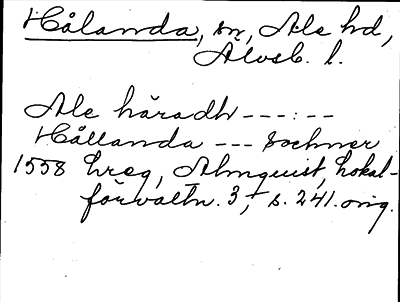 Hålanda, sn, Ale hd,
Älvsb. l.
Ale häradh ---:--
Hållanda --- Sochner
1558 hreg, Almquist, Lokal-
förvaltn. 3, s. 241. orig.